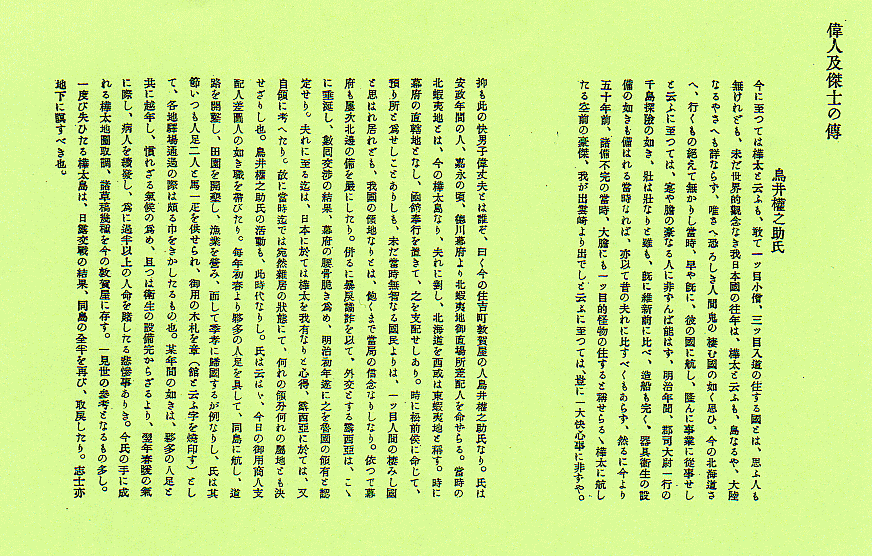 偉人及傑士の傳
鳥井權之助氏
今に至つては樺太と云ふも、敢て一ッ目小僧、三ッ目入道の住する國とは、思ふ人も
無けれども、未だ世界的觀念なき我日本國の往年は、樺太と云ふも、島なるや、大陸
なるやさへも詳ならず、唯さへ恐ろしき人間鬼の棲む國の如く思ひ、今の北海道さ
へ、行くもの絶えて無かりし當時、早や既に、彼の國に航し、隆んに事業に從事せし
と云ふに至つては、寔や膽の豪なる人に非ずんば能はず、明治年間、郡司大尉一行の
千島探險の如き、壯は壯なりと雖も、既に維新前に比べ、造船も完く、器具衛生の設
備の如きも備はれる當時なれば、亦以て昔の夫れに比すべくもあらず、然るに今より
五十年前、諸備不完の當時、大膽にも一ッ目的怪物の住すると稱せらるヽ樺太に航し
たる空前の豪傑、我が出雲崎より出でしと云ふに至つては、豈に一大快心事に非ずや。
抑も此の快男子偉丈夫とは誰ぞ、曰く今の住吉町敦賀屋の人鳥井權之助氏なり。氏は
安政年間の人、嘉永の頃、德川幕府より北蝦夷地御直場所差配人を命ぜらる。當時の
北蝦夷地とは、今の樺太島なり、夫れに對し、北海道を西或は東蝦夷地と稱す。時に
幕府の直轄地となし、函館奉行を置きて、之を支配せしあり。時に松前侯に命じて、
預り所と為せしことありしも、未だ當時無智なる國民よりは、一ッ目人間の棲みし國
と思はれ居れども、我國の領地なりとは、飽くまで當局の信念なりしなり。依つて幕
府も屢次北邊の備を嚴にしたり。併るに暴戾譎詐を以て、外交とする露西亞は、こヽ
に垂涎し、數回交渉の結果、幕府の腰骨脆き為め、明治初年遂に之を魯國の領有と認
定せり。夫れに至る迄は、日本に於ては樺太を我有なりと心得、露西亞に於ては、又
自領に考へたり。故に當時迄では宛然雜居の狀態にて、何れの領分何れの屬地とも決
せざりし也。鳥井權之助氏の活動も、此時代なりし。氏は云はヾ、今日の御用商人支
配人差圖人の如き職を帶びたり。每年初春より夥多の人足を具して、同島に航し、道
路を開鑿し、田園を開墾し、漁業を營み、而して季冬に歸國するが例なりし、氏は其
節いつも人足二人と馬一疋を供せられ、御用の木札を章(舘と云ふ字を燒印す)とし
て、各地驛場通過の際は頗る巾をきかしたるもの也。某年間の如きは、夥多の人足と
共に越年し、慣れざる氣候の為め、且つは衛生の設備完からざるより、翌年春暖の氣
に際し、病人を續發し、為に過半以上の人命を賭したる悲慘事ありき。今氏の手に成
れる樺太地圖取調、諸草稿幾種を今の敦賀屋に存す。一見世の參考となるもの多し。
一度び失ひたる樺太島は、日露交戰の結果、同島の全半を再び、取戾したり。志士亦
地下に瞑すべき也。